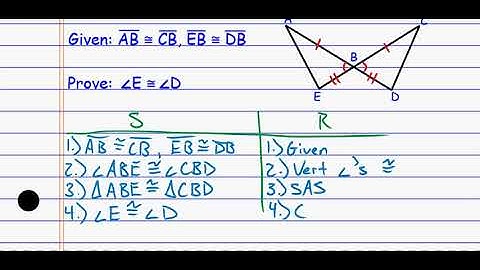 A C
Given: AB ≅ CB, EB ≅ DB
B
Prove: ∠E ≅ ∠D
E D
S R
1.) AB ≅ CB, EB ≅ DB 1.) Given
2.) ∠ABE ≅ ∠CBD 2.) Vert ∠'s ≅
3.) ΔABE ≅ ΔCBD 3.) SAS
4.) ∠E ≅ ∠D 4.) C